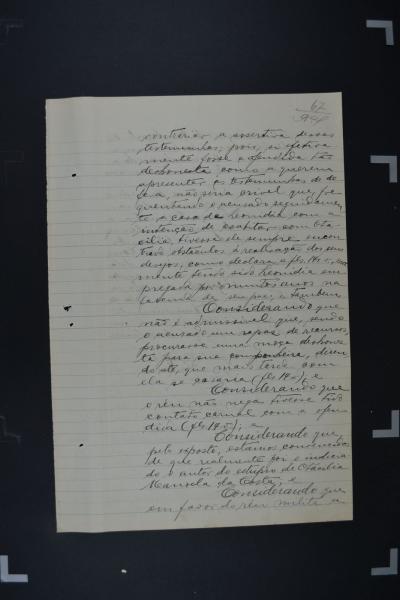 67
contrariar a assertiva dessas
testemunhas, pois, si effectiva
mente fosse a offendida tão
deshonesta como a querem
apresentar as testemunhas de de
feza, não seria crivel que, fre
quentando o accusado seguidamen
te a casa de Leonidia com a
intenção de
tivesse de sempre encon
trado obstaculos á realização dos seus
desejos, como declara a fls. 14v.,
mente tendo sido Leonidia em
pregada por muitos annos na
de seu pae, e tambem
Considerando que
não é admissivel que, sendo
o accusado um rapaz de recursos,
procurasse uma moça deshones
ta para sua companheira, dizen
do até, que mais tarde com
ella se casaria (fls 14v); e
Considerando que
o réu não nega tivesse tido
contato carnal com a offen
dida (fls 14v); e
Considerando que,
pelo exposto, estamos convencidos
de que realmente foi o indicia
do o autor do estupro de
da Costa; e
Considerando que
em favor do réu milita a